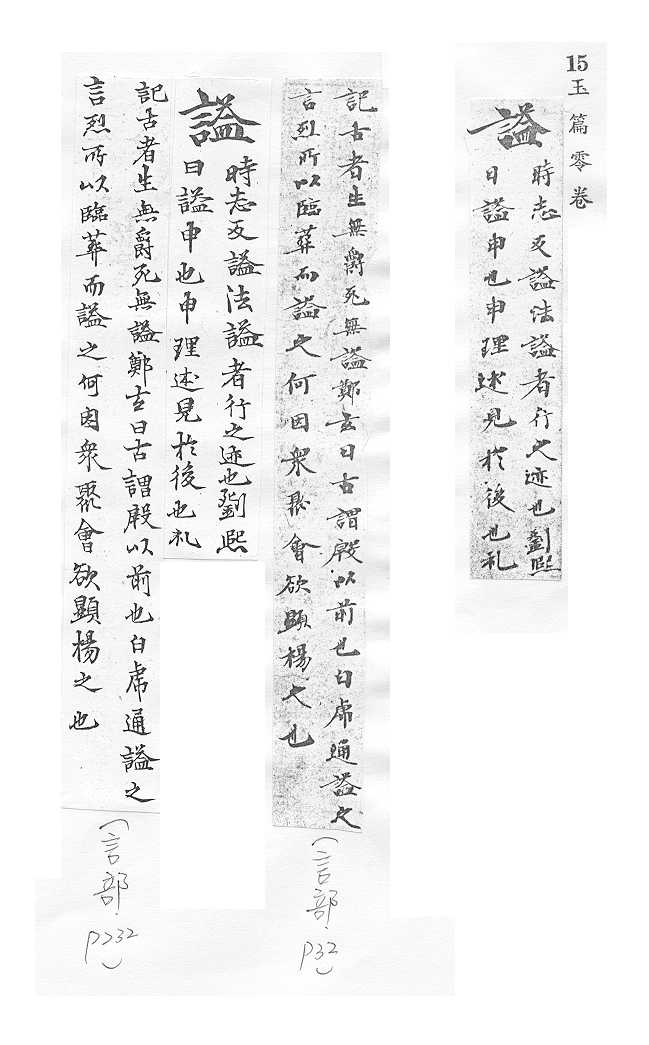 15玉篇零卷
謚
時志反謚法謚者行之迹也劉熙
曰謚申也申理述見於後也礼
記古者生無爵死無謚鄭玄曰古謂殷以前也白虎通謚之
言烈所以臨葬而謚之何因衆聚會欲顯楊之也
(言部.P32)
謚
時志反謚法謚者行之迹也劉熙
曰謚申也申理述見於後也礼
記古者生無爵死無謚鄭玄曰古謂殷以前也白虎通謚之
言烈所以臨葬而謚之何因衆聚會欲顯楊之也
(言部.P232)